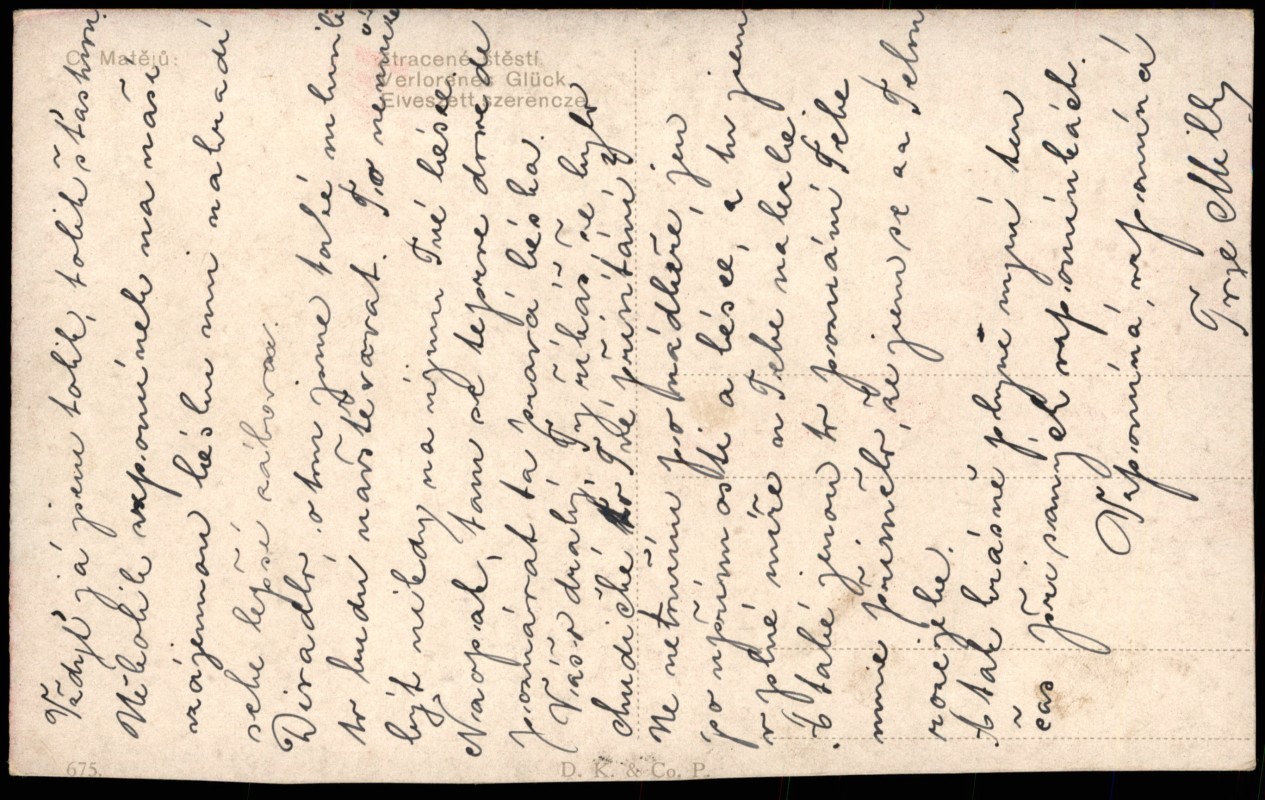 C. Matějů:
Ztracené štěstí.
Verlorenes Glück.
Elveszett szerencze.
Vždyť já jsem tolik, tolik šťastna
Někoho vzpomíneh na naši
vzájemnou lásku mi nahradí
sebe lepší zábova.
Divadlo o tom jsme také mluvili
to budu navštěvovat. To nemůže
být nikdy náhrada Tvé lásce.
Naopak, tam se teprve dovede
poznávat ta pravá láska.
Vášo drahý, Ty říkáš že bylo
chudičké Tvé přivítání
Ne netoužím po nádheře, jen
po upřímnosti a lásce, a tu jsem
v plné míře u Tebe nalezla
A také jenom to poznání Tebe
mne přimělo, že jsem se a Tebou
rozešla.
A tak krásně plyne nyní ten
čas při samých vzpomínkách.
Vzpomíná, vzpomíná
Tvze Milly
675.
D. K. & Co. P.